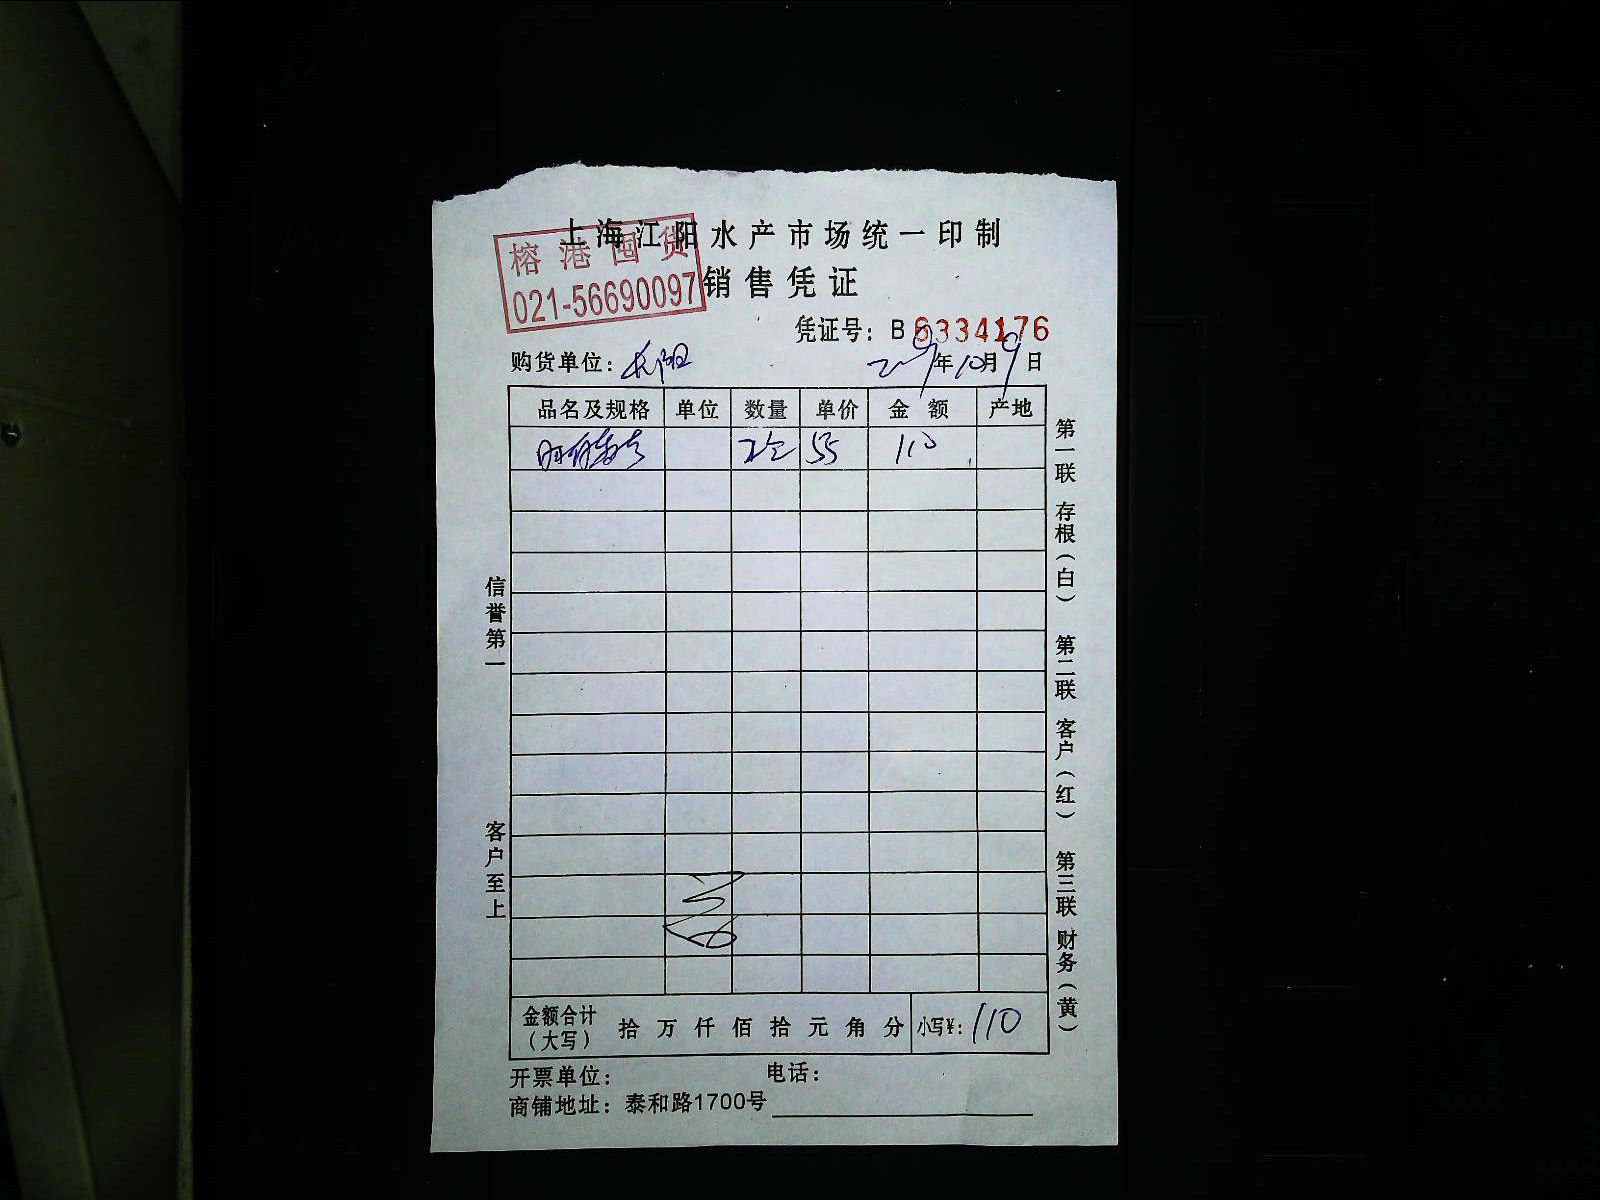 上海江阳水产市场统一印制
榕港囤货
021-56690097
销售凭证
凭证号：B 6334176
购货单位：长阳
2009年10月9日
品名及规格 单位 数量 单价 金额 产地
2 55 110
信誉第一
客户至上
第一联 存根（白） 第二联 客户（红） 第三联 财务（黄）
金额合计（大写） 拾万仟佰拾元角分 小写¥：110
开票单位： 电话：
商铺地址：泰和路1700号